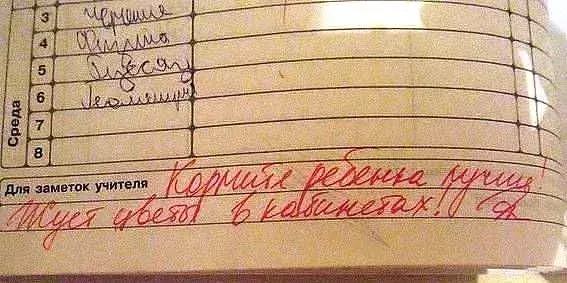 3 Черчение
4 Физика
5
6 Геометрия
7
8
Среда
Для заметок учителя Кормите ребенка лучше!
Жует цветы в кабинетах!